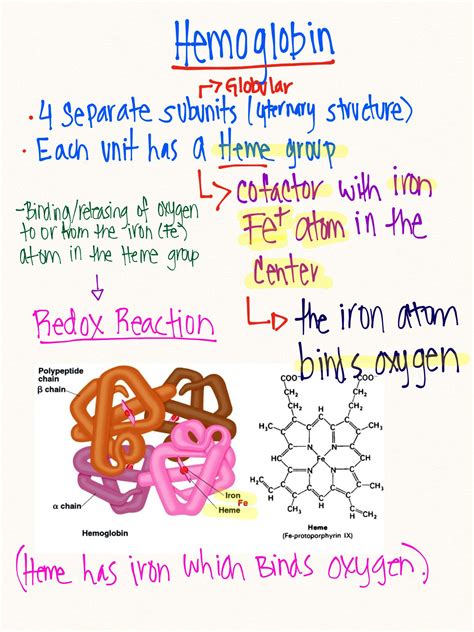 Hemoglobin
Globular
• 4 separate subunits (4ternary structure)
• Each unit has a Heme group
cofactor with iron
Fe+ atom in the
center
-Binding/releasing of oxygen
to or from the iron (Fe²)
atom in the Heme group
Redox Reaction
the iron atom
binds oxygen
Polypeptide
chain
β chain
α chain
Iron
Fe
Heme
Hemoglobin
COO⁻
COO⁻
CH₂
CH₂
CH₂
CH₂
H
H₃C
CH₃
N
N
HC
CH
Fe
N
N
H₂C
CH₃
H
H₃C
CH
CH₂
Heme
(Fe-protoporphyrin IX)
(Heme has iron which Binds Oxygen.)